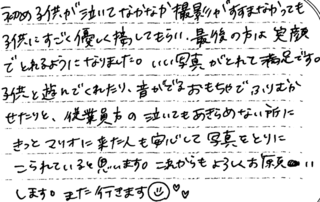 初め子供が泣いてなかなか撮影がすすまなかっても
子供にすごく優しく接してもらい、最後の方は笑顔
でとれるようになりました。いい写真がとれて満足です。
子供と遊んでくれたり、音がでるおもちゃでふりむか
せたりと、従業員方の泣いてもあきらめない所に
きっとマリオに来た人も安心して写真をとりに
こられていると思います。これからもよろしくお願い
します。また行きます